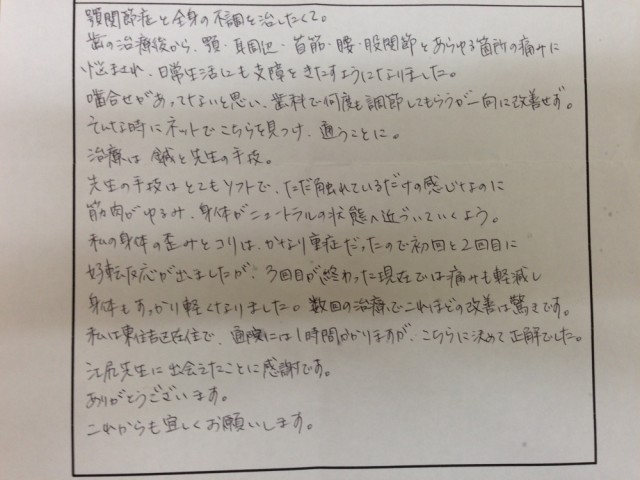 顎関節症と全身の不調を治したくて。
歯の治療後から、顎・耳周辺・首筋・腰・股関節とあらゆる箇所の痛みに
悩まされ、日常生活にも支障をきたすようになりました。
噛合せがあってないと思い、歯科で何度も調節してもらうが一向に改善せず。
そんな時にネットでこちらを見つけ、通うことに。
治療は鍼と先生の手技。
先生の手技はとてもソフトで、ただ触れているだけの感じなのに
筋肉がゆるみ、身体がニュートラルの状態へ近づいていくよう。
私の身体の歪みとコリは、かなり重症だったので初回と2回目に
好転反応が出ましたが、3回目が終わった現在では痛みも軽減し
身体もすっかり軽くなりました。数回の治療でこれほどの改善は驚きです。
私は東住吉区在住で、通院には1時間かかりますが、こちらに決めて正解でした。
江尻先生に出会えたことに感謝です。
ありがとうございます。
これからも宜しくお願いします。